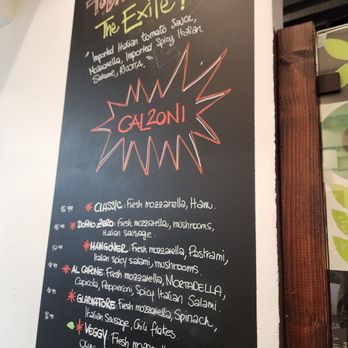 The Exile!
"Imported Italian tomato sauce,
Mozzarella, Imported Spicy Italian
Salame, Ricotta."
CALZONI
CLASSIC: Fresh mozzarella, Ham.
DOPPIO ZERO: Fresh mozzarella, mushrooms,
Italian sausage.
HANGOVER: Fresh mozzarella, Pastrami,
Italian spicy salami, mushrooms.
AL CAPONE: Fresh mozzarella, MORTADELLA,
Capicola, Pepperoni, Spicy Italian Salami.
GLADIATORE: Fresh mozzarella, Spinach,
Italian Sausage, Chili flakes
VEGGY: Fresh mozza